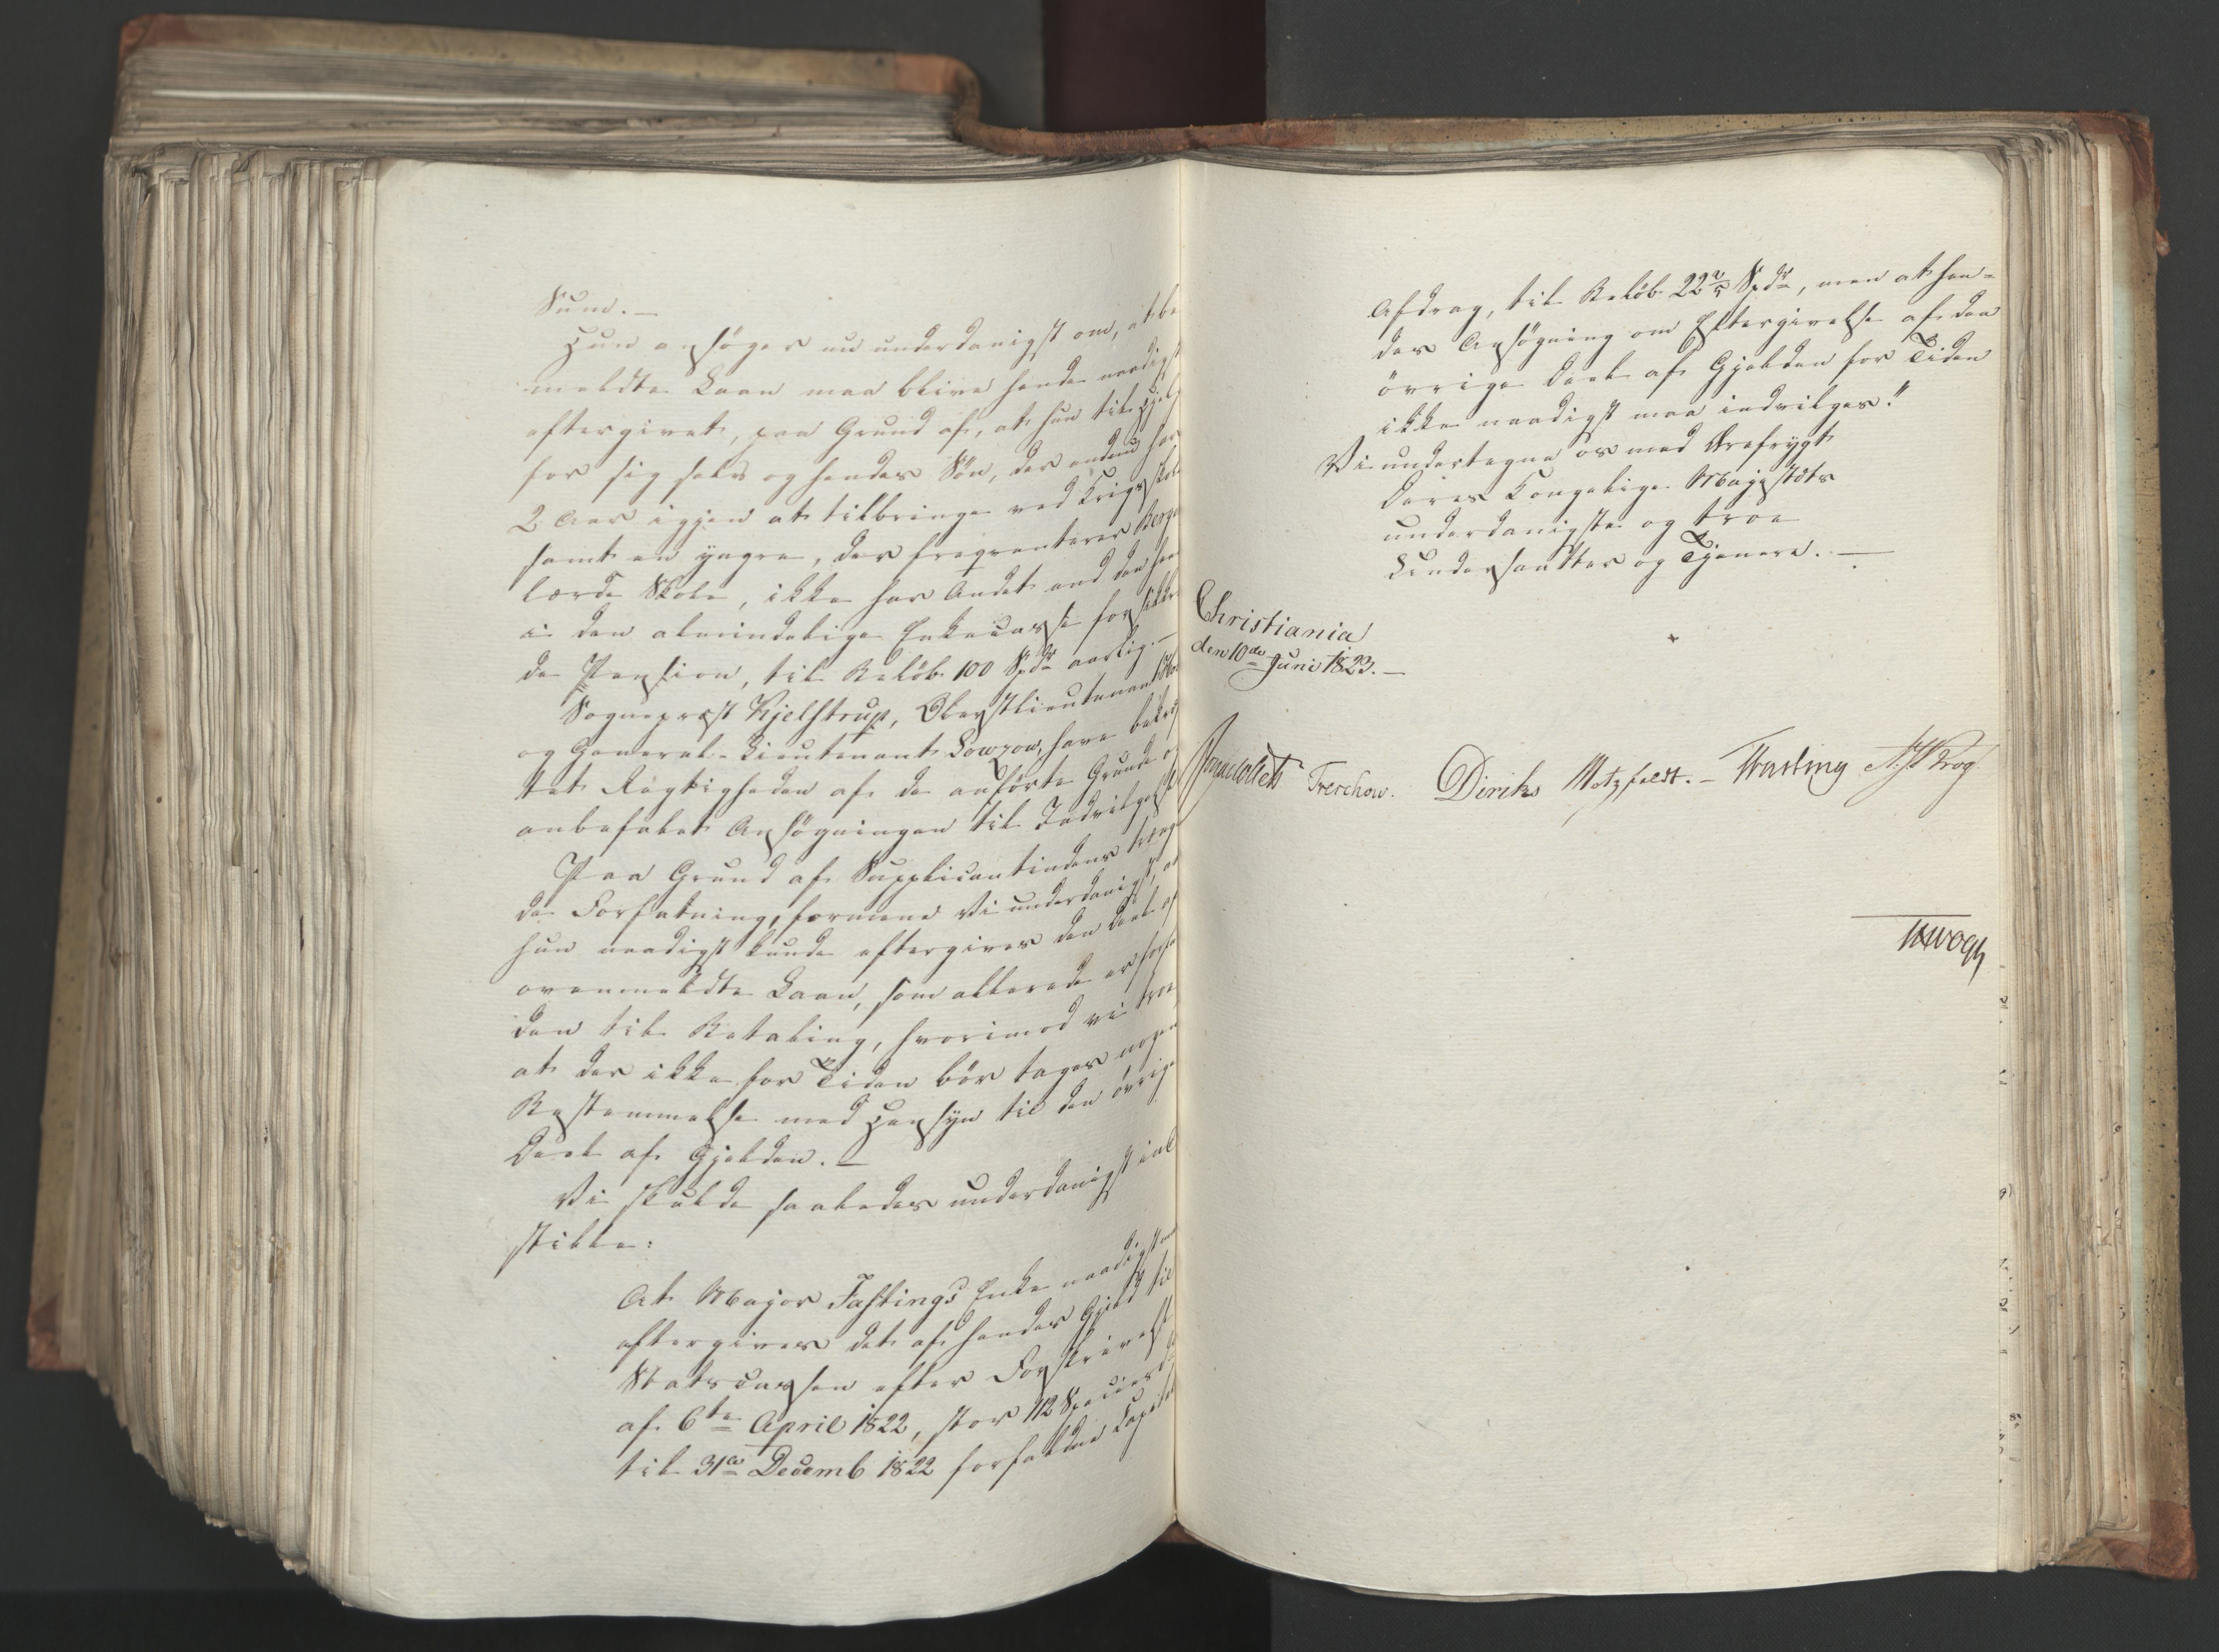 Sum. —
Hun ansøger nu underdanigst om, at be
meldte Laan maa blive hende naadigst
eftergivet, paa Grund af, at hun til Hjelp
for sig selv og hendes Søn, der endnu har
2 Aar igjen at tilbringe ved Krigsskolen
samt en yngre, der freqventerer Bergens
lærde Skole, ikke har Andet end den hen
i den almindelige Enkecasse forsikkre
de Pension, til Beløb 100 Spdr aarlig. —
Sognepræst Kjelstrup, Oberstlieutenant
og General-Lieutenant Lowzow, have bekræf
tet Rigtigheden af de anførte Grunde og
anbefalet Ansøgningen til Indvilgelse
Paa Grund af Supplicantindens træng
de Forfatning, formene Vi underdanigst, at
hun naadigst kunde eftergives den Deel af
ovenmeldte Laan, som allerede er forfal
den til Betaling, hvorimod vi troe
at der ikke for Tiden bør tages nogen
Bestemmelse med Hensyn til den øvrige
Deel af Gjelden. —
Vi skulde saaledes underdanigst ind
stille:
At Major Fastings Enke naadigst
eftergives det af hendes Gjeld til
Statscassen efter Forskrivelse
af 6te April 1822, stor 112 Species
til 31te Decemb 1822 forfaldne Capital
Afdrag, til Beløb 22 2/5 Spdr, men at hen-
des Ansøgning om Eftergivelse af den
øvrige Deel af Gjelden for Tiden
ikke naadigst maa indvilges."
Vi undertegne os med Ærefrygt
Deres Kongelige Majestæts
underdanigste og troe
Undersaatter og Tjenere. —
Christiania
den 10de Juni 1823. —
Jonas Collett Treschow. Diriks Motzfeldt. — Fasting N. J. Krog
Hwogh